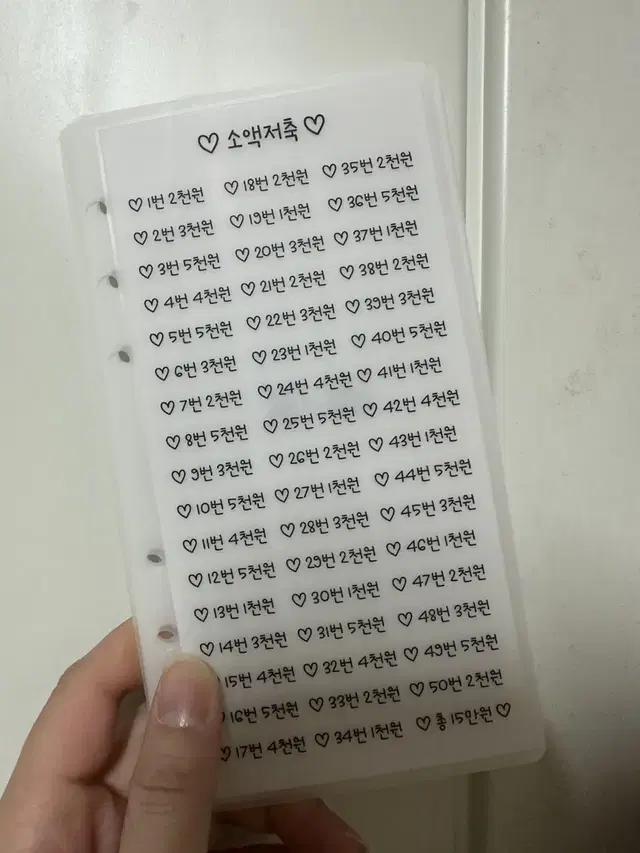 ♡ 소액저축 ♡
♡ 1번 2천원
♡ 2번 3천원
♡ 3번 5천원
♡ 4번 4천원
♡ 5번 5천원
♡ 6번 3천원
♡ 7번 2천원
♡ 8번 5천원
♡ 9번 3천원
♡ 10번 5천원
♡ 11번 4천원
♡ 12번 5천원
♡ 13번 1천원
♡ 14번 3천원
♡ 15번 4천원
♡ 16번 5천원
♡ 17번 4천원
♡ 18번 2천원
♡ 19번 1천원
♡ 20번 3천원
♡ 21번 2천원
♡ 22번 3천원
♡ 23번 1천원
♡ 24번 4천원
♡ 25번 5천원
♡ 26번 2천원
♡ 27번 1천원
♡ 28번 3천원
♡ 29번 2천원
♡ 30번 1천원
♡ 31번 5천원
♡ 32번 4천원
♡ 33번 2천원
♡ 34번 1천원
♡ 35번 2천원
♡ 36번 5천원
♡ 37번 1천원
♡ 38번 2천원
♡ 39번 3천원
♡ 40번 5천원
♡ 41번 1천원
♡ 42번 4천원
♡ 43번 1천원
♡ 44번 5천원
♡ 45번 3천원
♡ 46번 1천원
♡ 47번 2천원
♡ 48번 3천원
♡ 49번 5천원
♡ 50번 2천원
♡ 총 15만원 ♡